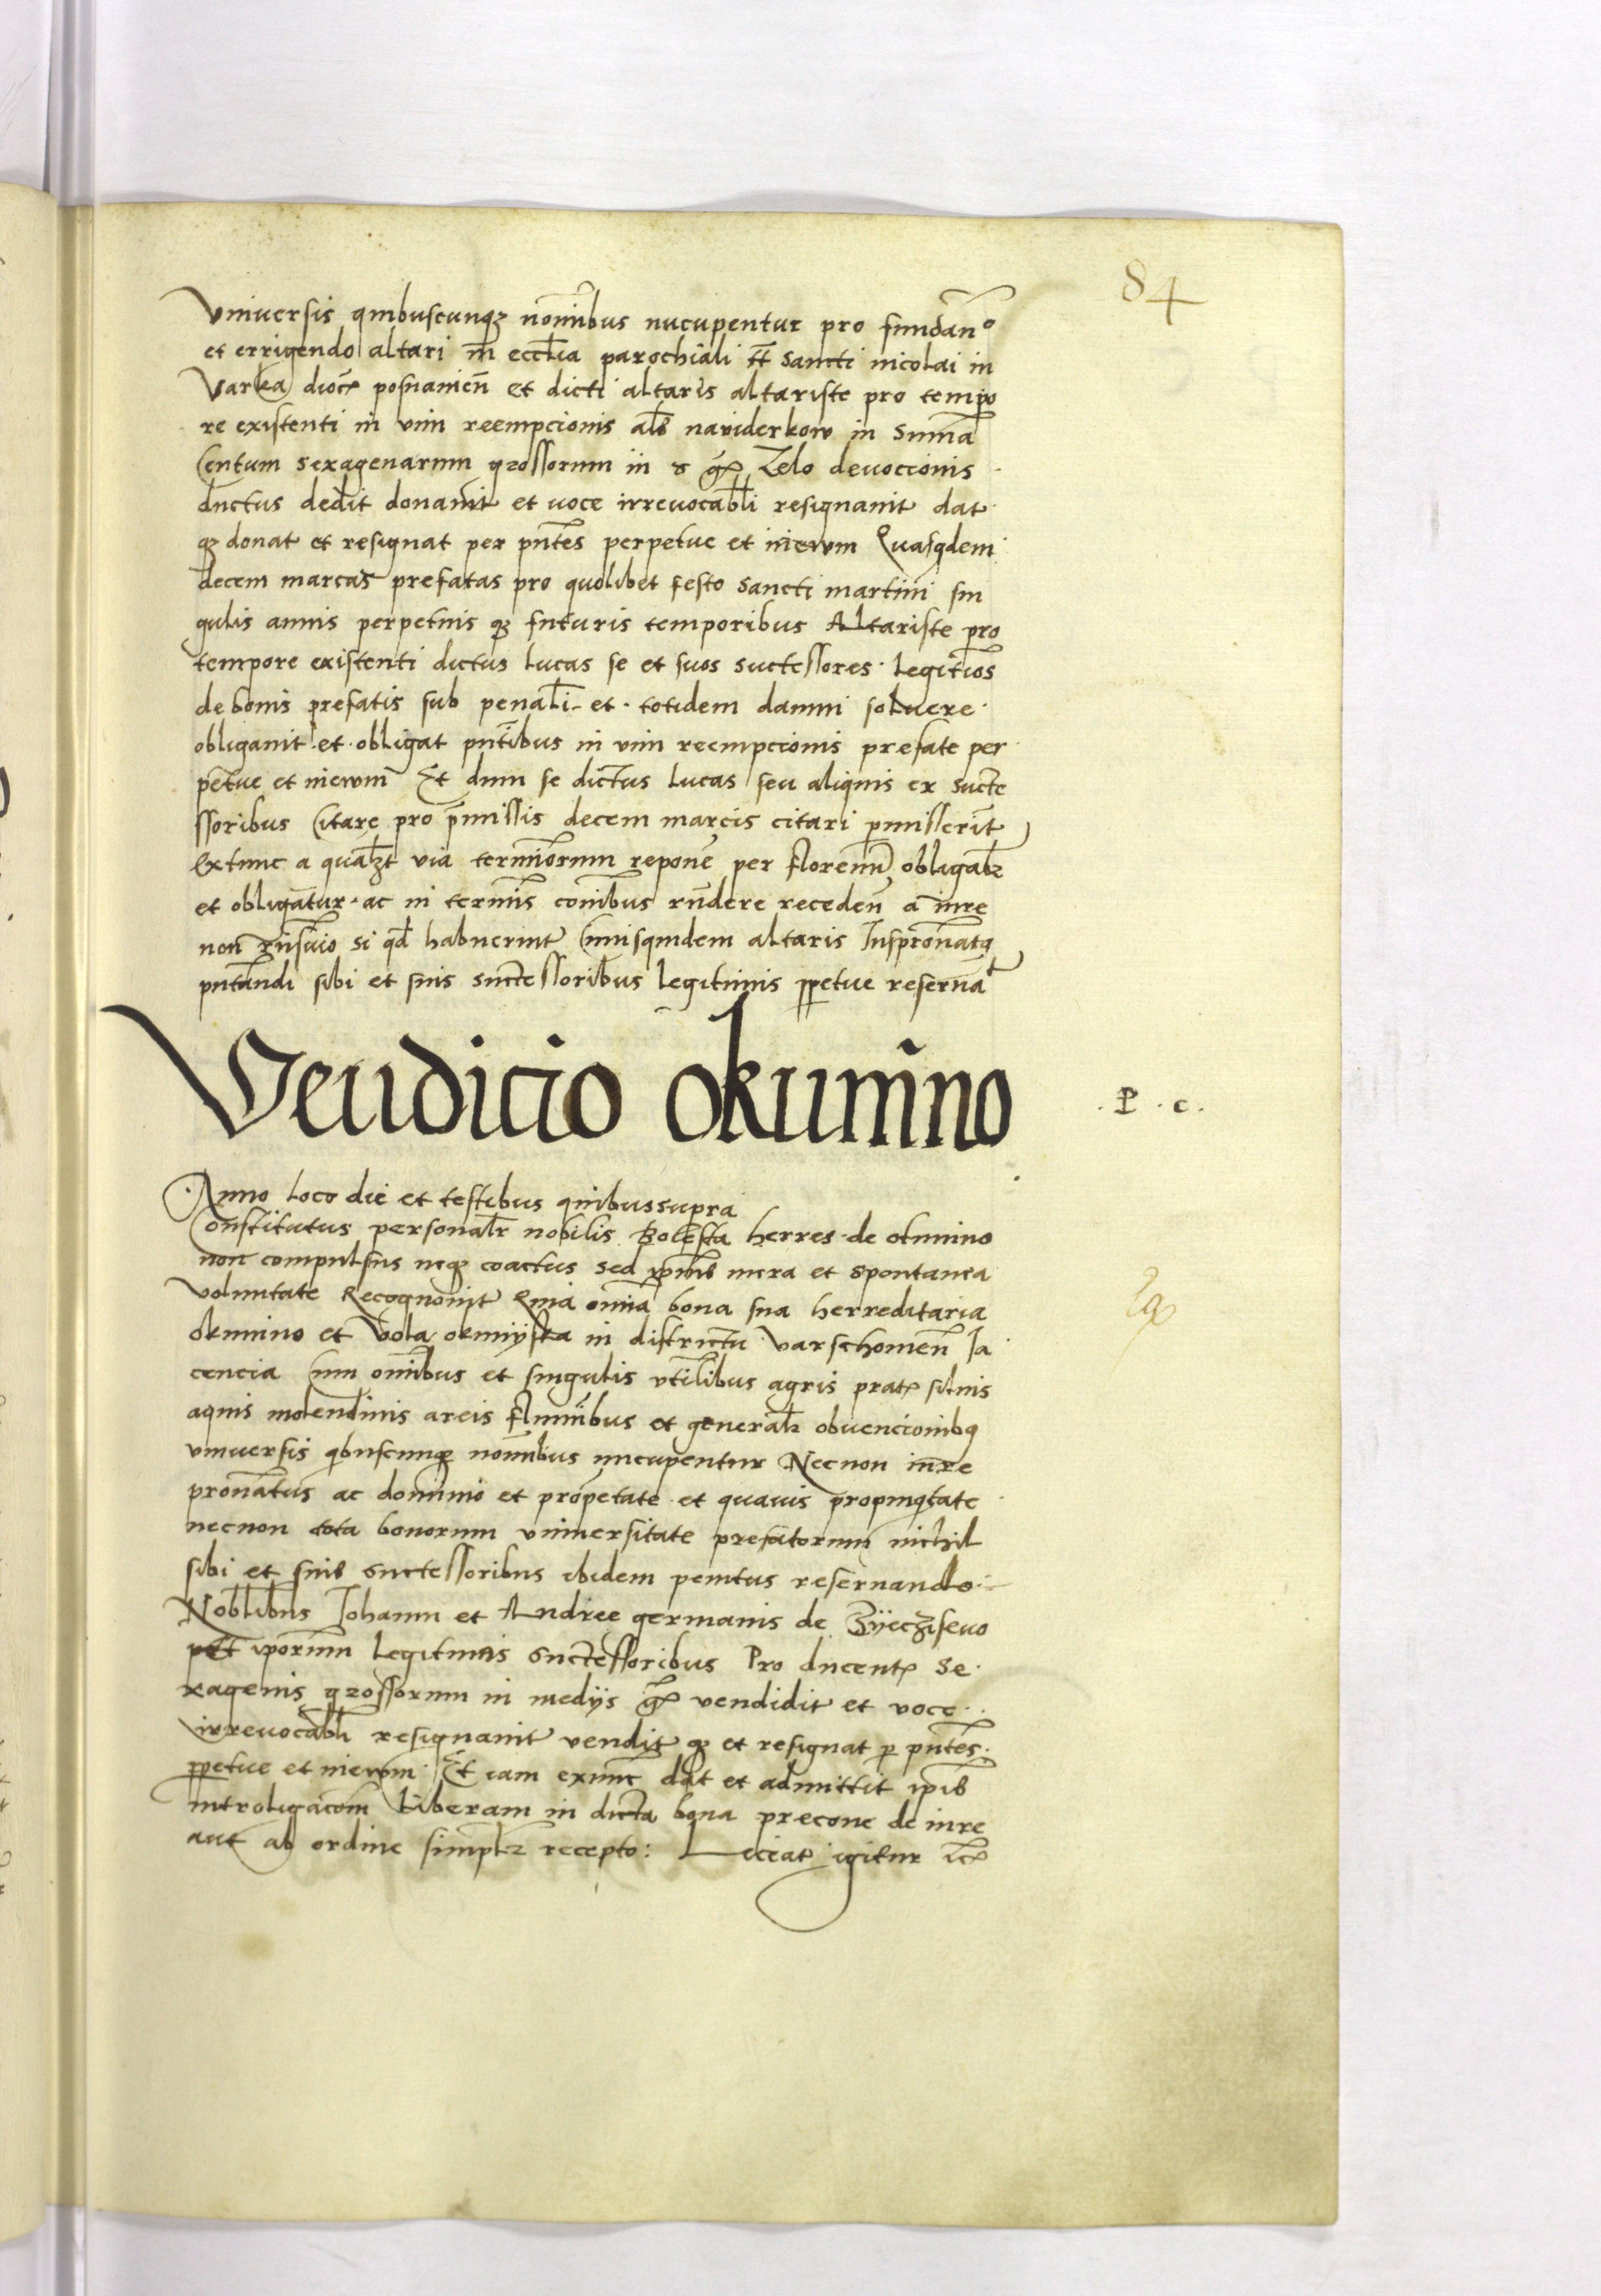 84
Vniuersis quibuscunqz nom̄ibus nucupentur pro fundan̄o
et errigendo altari in eccl̄ia parochiali tt̄ sancti nicolai in
Varka dioc̄ posnanien̄ et dicti altaris altariste pro tempo
re existenti in vim reempcionis al̄s naviderkow in sum̄a
Centum sexagenarum grossorum in
Zelo deuocionis
ductus dedit donauit et uoce irreuocabl̄i resignauit dat
qz donat et resignat per pn̄tes perpetue et
Quasqdem
decem marcas prefatas pro quolibet festo sancti martini sin
gulis annis perpetuis qz futuris temporibus Altariste pro
tempore existenti dictus Lucas se et suos suctessores Legitīos
de bonis prefatis sub penal̄i et totidem damni soluere
obligauit et obligat pn̄tibus in vim reempcionis prefate per
petue et
Et dum se dictus Lucas seu aliquis ex sucte
ssoribus Citare pro p̄missis decem marcis citari pmisserit
Extunc a qual3t via termīorum repone per florenū obligabr̄
et obligātur ac in termīs com̄ibus rn̄dere receden̄ a iure
non
si qd̄ habuerint Cuiusquidem altaris Iuspronatq
pn̄tandi sibi et suis suctessoribus legitimis ppetue reserua
Vendicio okunīno
. P . c .
Anno loco die et testibus quibussupra
Constitutus personalr̄ nobilis Bolesta herres de okunino
non compulsus neqz coactus sed
mera et spontanea
voluntate Recognouit Quia omīa bona sua herreditaria
okunino et Vola okuniyska in districtu varschouien̄ Ia
cencia Cum omībus et singulis vtilibus agris prat siluis
aquis molendinis areis flumībus et generalr̄ obuencionibq
vniuersis qbuscunqz nomībus nucupentur Necnon iure
pronatus ac dominio et propetate et quauis propinqtate
necnon tota bonorum vniuersitate prefatorum nichil
sibi et suis suctessoribus ibidem penitus reseruando
Nobl̄ibus Iohanni et Andree germanis de
ipōrum legitimis suctessoribus Pro ducent se
xagenis grossorum in medijs
vendidit et voce
irreuocabl̄i resignauit vendit qz et resignat p pn̄tes
ppetue et
Et iam exnunc dat et admittit ipīs
introligacōm liberam in dicta bona precone de iure
aut ab ordine simpl̄r recepto: Liceat igitur